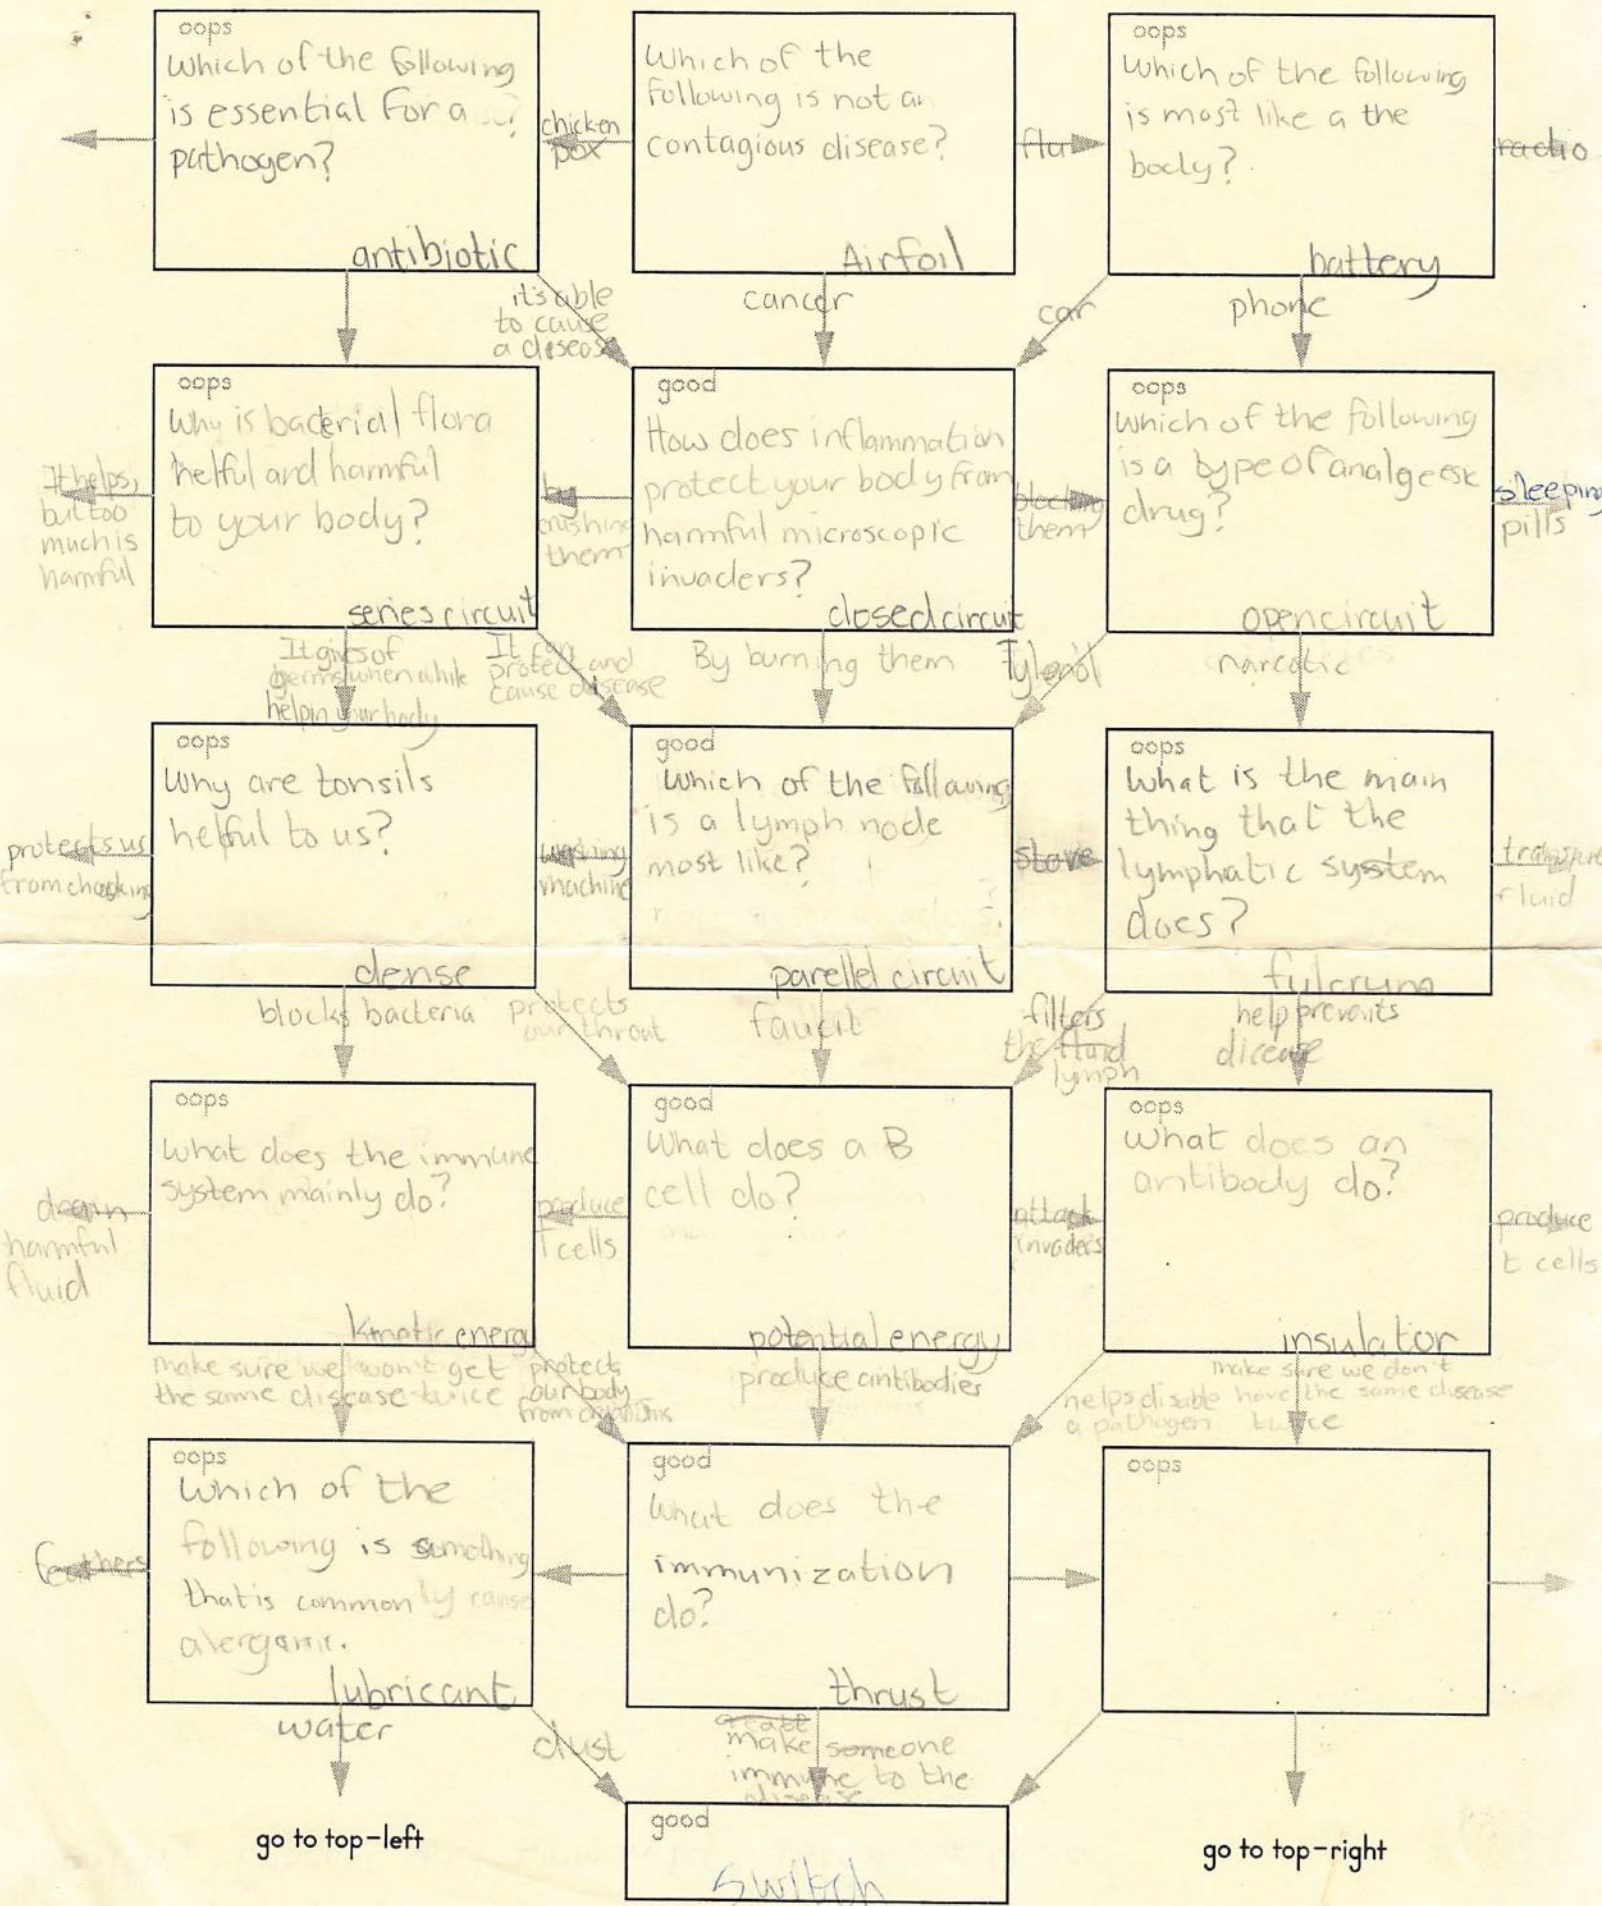 oops
Which of the following
is essential for a
pathogen?
antibiotic
chicken
pox
Which of the
following is not an
contagious disease?
Airfoil
flu
oops
Which of the following
is most like a the
body?
battery
radio
it's able
to cause
a desease
cancer
car
phone
oops
Why is bacterial flora
helful and harmful
to your body?
series circuit
It helps,
but too
much is
harmful
by
crushing
them
good
How does inflammation
protect your body from
harmful microscopic
invaders?
closed circuit
blocking
them
oops
Which of the following
is a type of analgeesk
drug?
open circuit
sleeping
pills
It gives of
germs when while
helpin your body
It can
protect and
cause disease
By burning them
Tylenol
narcotic
oops
Why are tonsils
helful to us?
dense
protects us
from chocking
washing
machine
good
Which of the following
is a lymph node
most like?
parellel circuit
stove
oops
What is the main
thing that the
lymphatic system
does?
fulcrum
fluid
blocks bacteria
protects
our throat
faucit
filters
the fluid
lymph
help prevents
dicease
oops
What does the immune
system mainly do?
kinetic energy
drain
harmful
fluid
produce
T cells
good
What does a B
cell do?
potential energy
attack
invaders
oops
What does an
antibody do?
insulator
produce
t cells
make sure we won't get
the same disease twice
protects
our body
from
produce antibodies
helps disable
a pathogen
make sure we don't
have the same disease
twice
oops
Which of the
following is something
that is commonly cause
lubricant
feathers
good
What does the
immunization
do?
thrust
oops
water
dust
make someone
immune to the
disease
go to top-left
good
switch
go to top-right